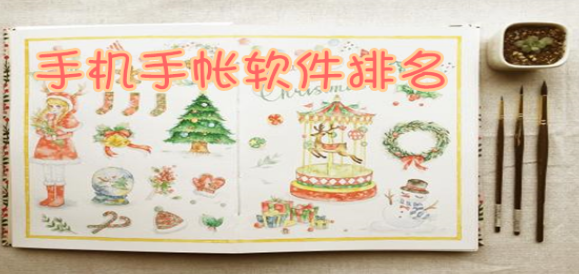 手机手帐软件排名
Christmas